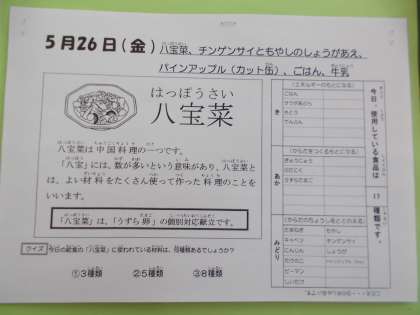 5月26日(金) 八宝菜、チンゲンサイともやしのしょうがあえ、
パインアップル(カット缶)、ごはん、牛乳
はっぽうさい
八宝菜
八宝菜は中国料理の一つです。
「八宝」には、数が多いという意味があり、八宝菜と
は、よい材料をたくさん使って作った料理のことを
いいます。
「八宝菜」は、「うずら卵」の個別対応献立です。
クイズ 今日の給食の「八宝菜」に使われている材料は、何種類あるでしょうか?
①3種類 ②5種類 ③8種類
今日、使用している食品は 17 種類です。
き
(エネルギーのもとになる)
ごはん
さとう
でんぷん
あか
(からだをつくるもとになる)
ぎゅうにゅう
みどり
(からだのちょうしをととのえる)
たまねぎ もやし
キャベツ チンゲンサイ
にんじん しょうが
たけのこ
ピーマン
しいたけ